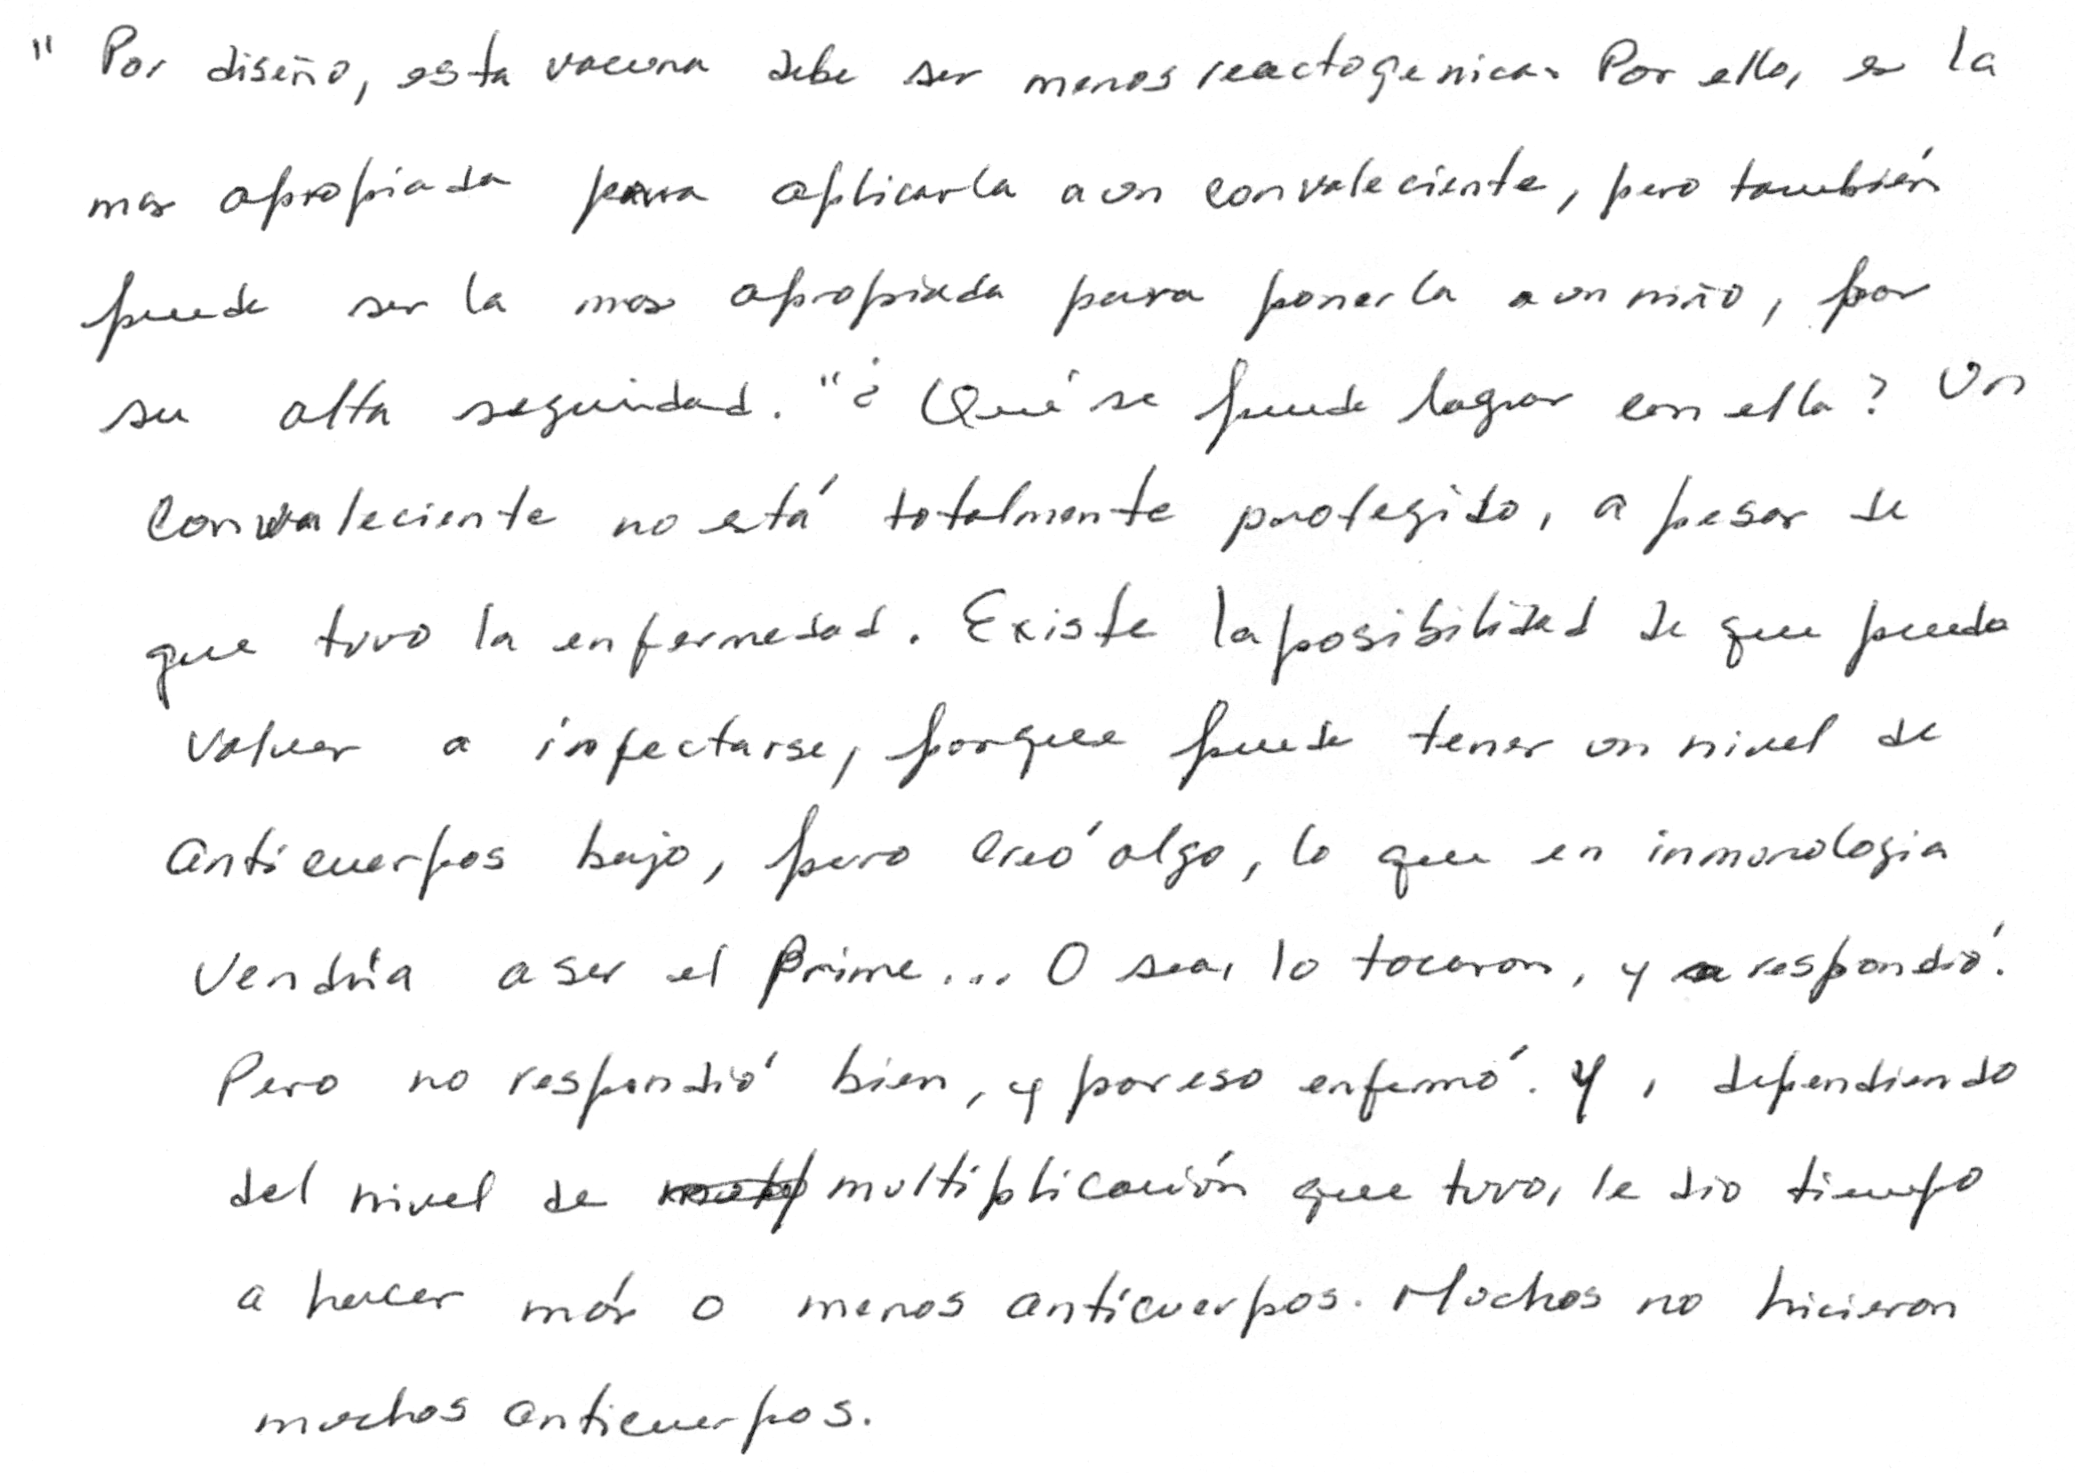 " Por diseño, esta vacuna debe ser menos reactogenica. Por ello, es la
mas apropiada para aplicarla a un convaleciente, pero también
puede ser la mas apropiada para ponerla a un niño, por
su alta seguridad. " ¿ Qué se puede lograr con ella? Un
convaleciente no está totalmente protegido, a pesar de
que tuvo la enfermedad. Existe la posibilidad de que pueda
volver a infectarse, porque puede tener un nivel de
anticuerpos bajo, pero creó algo, lo que en inmunologia
vendría a ser el Prime... O sea, lo tocaron, y respondió.
Pero no respondió bien, y por eso enfermó. Y, dependiendo
del nivel de multiplicación que tuvo, le dio tiempo
a hacer más o menos anticuerpos. Muchos no hicieron
muchos anticuerpos.